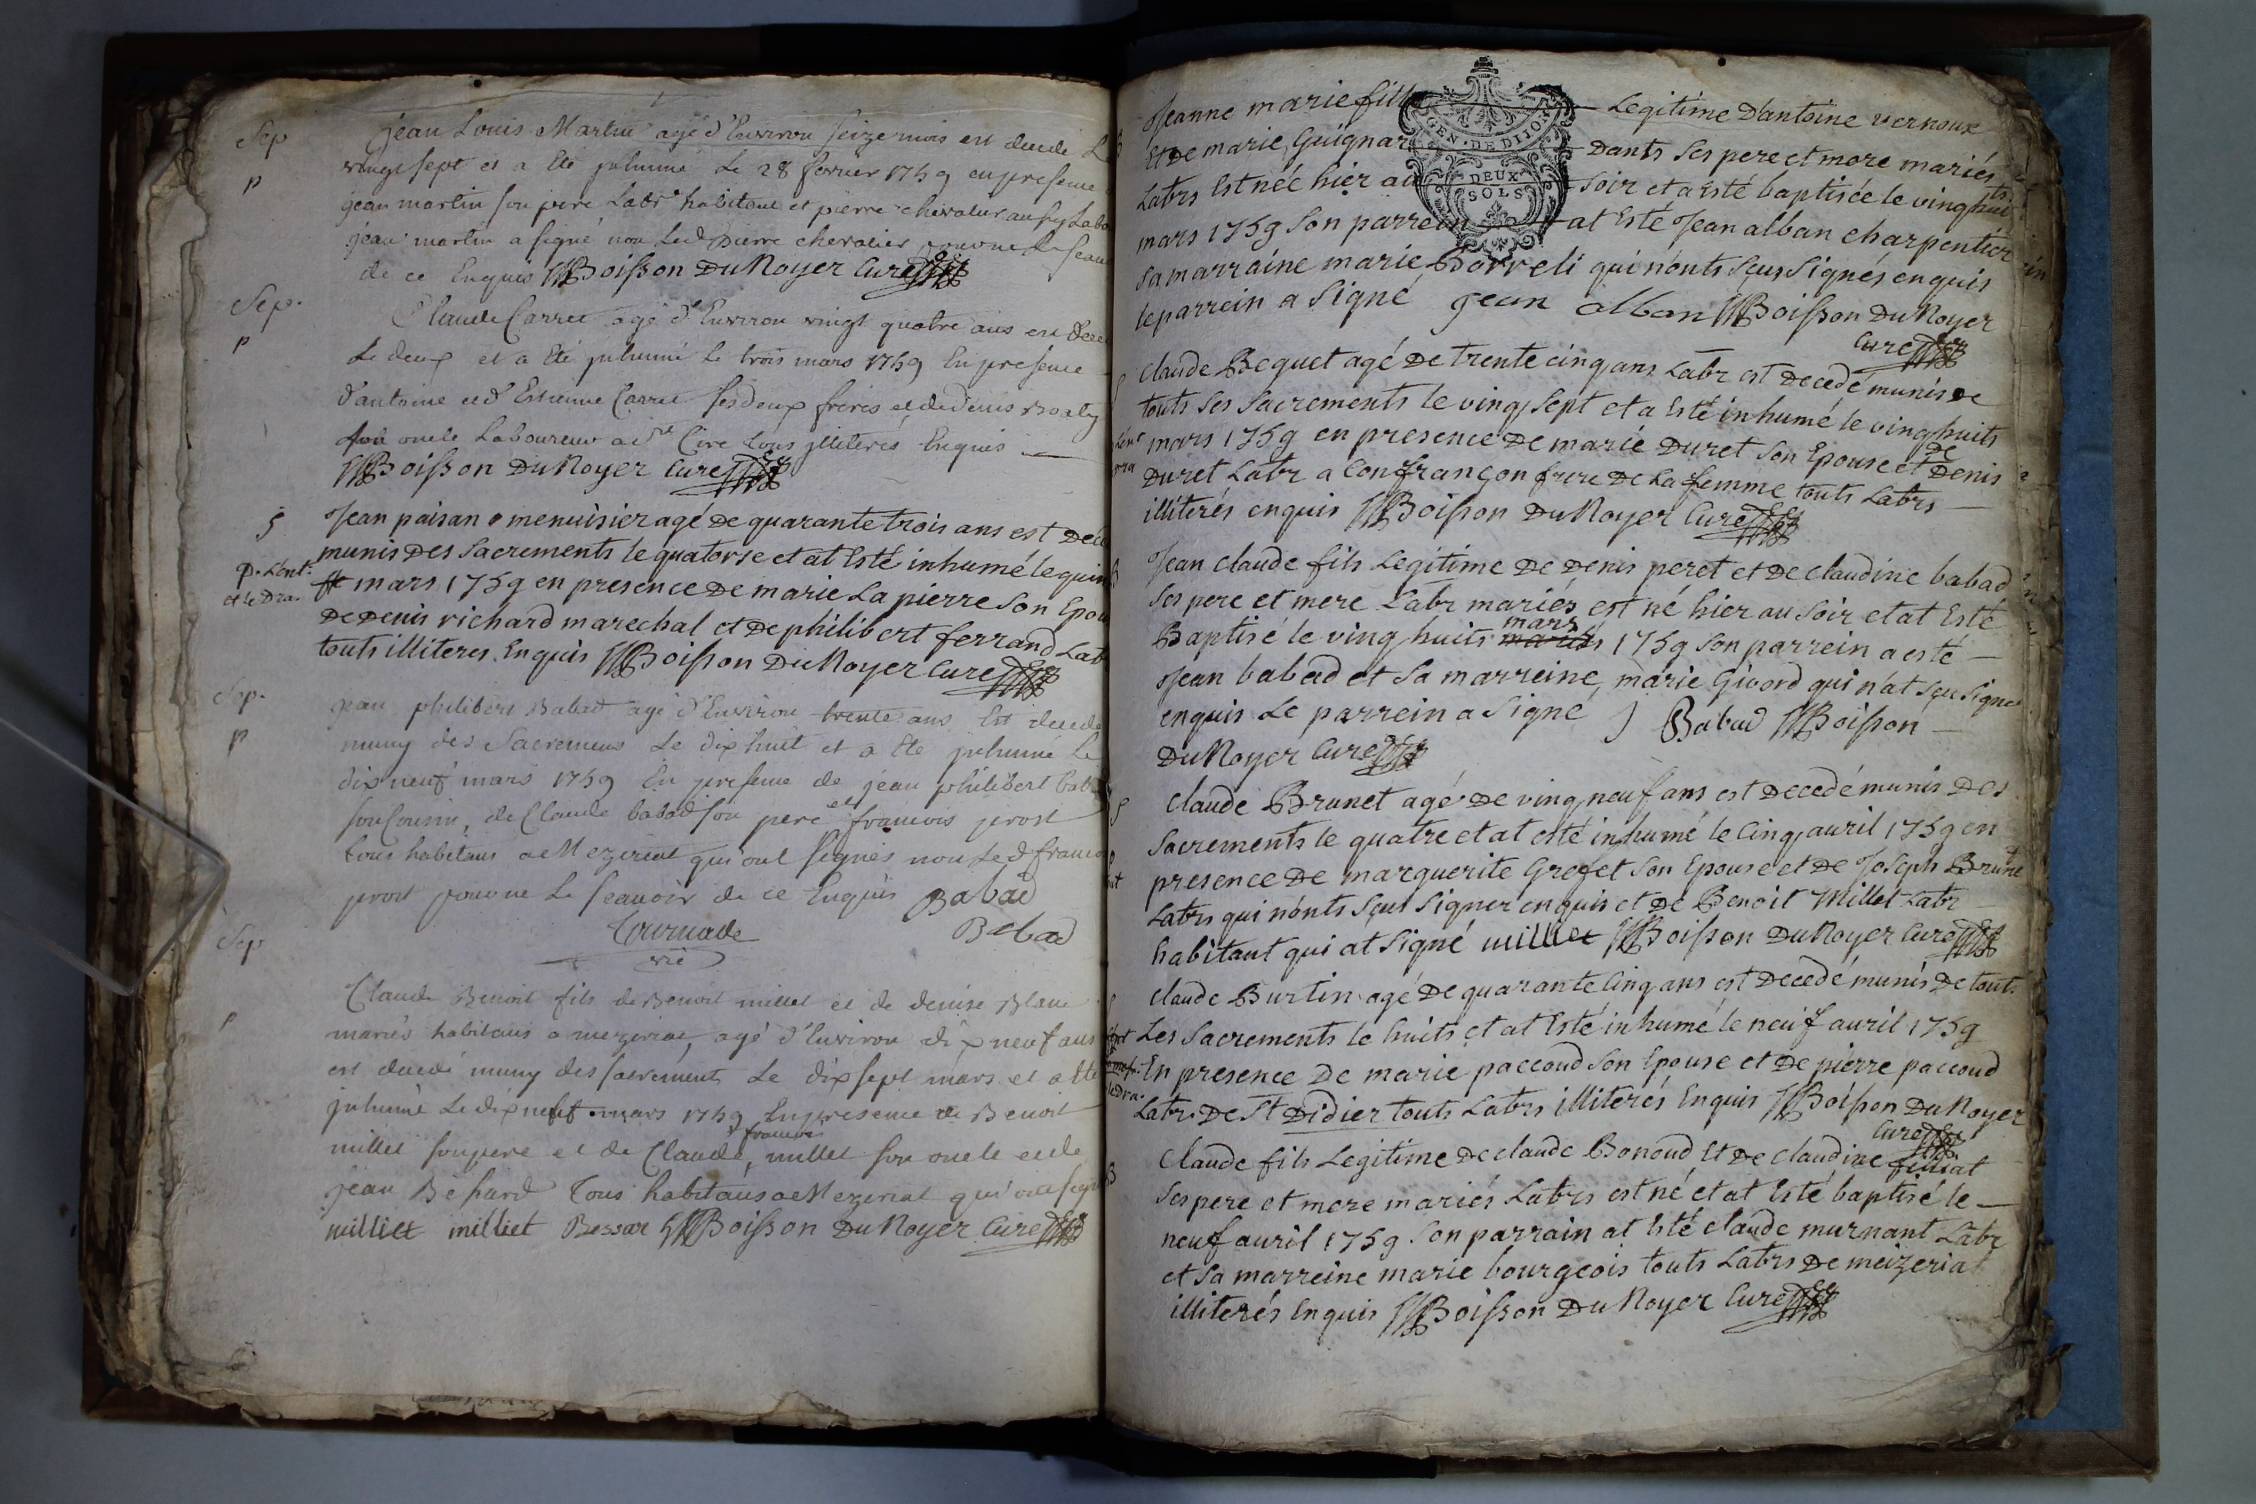 Sep
p
jean Louis Martin agé d'Environ seize mois est decedé Le
vingt sept et a Eté jnhumé Le 28 fevrier 1759 en presence
jean martin son pere Labr habitant et pierre chevalier aussy Labo
jean martin a signé non Led pierre chevalier pour ne le scavo
de ce Enquis Boisson DuNoyer Curé
Sep.
p
Claude Carret agé d'Environ vingt quatre ans est dece
Le deux et a Eté jnhumé Le trois mars 1759 En presence
d'antoine et d'Estienne Carret ses deux freres et de denis
son oncle Laboureur a Cire tous jlliterés Enquis
Boisson DuNoyer Curé
S
p. Lent.
et le Dra.
Jean paisan menuisier agé de quarante trois ans est Décé
munis Des Sacrements le quatorse et at Esté inhumé le quin
mars 1759 en presence De marie La pierre Son Epou
De Denis richard marechal et De philibert ferrand Lab
touts illiteres Enquis Boisson DuNoyer Curé
Sep.
p
jean philibert Babad agé d'Environ trente ans Est decede
muny des Sacremens Le dix huit et a Ete jnhumé Le
dix neuf mars 1759 En presence de jean philibert bab
son Cousin, de Claude babad son pere et francois prost
tous habitans a Mezeriat qui ont signés non Led franco
prost pour ne Le scavoir de ce Enquis Babad
Tournade Babad
vic
Sep
p
Claude Benoit fils de Benoit millet et de denise Blanc
mariés habitans a mezeriat, agé d'Environ dix neuf ans
est decedé muny des sacréments Le dix sept mars et a Eté
jnhumé Le dix neuf mars 1759 En presence de Benoit
millet son pere et de Claude françois millet son oncle et de
jean Besard Tous habitans a Mezeriat qui ont sign
milliet milliet Bessar Boisson DuNoyer Curé
GEN. DE DIJON
DEUX
SOLS
Jeanne marie fille Legitime D'antoine vernoux
Et De marie Guignar Dants Ses pere et mere mariés
Labrs Est née hier au Soir et a Esté baptisée le vinghuits
mars 1759 Son parrein at Esté Jean alban charpentier
Sa marraine marie Borreli qui n'onts Sçus Signés enquis
le parrein a Signé jean alban Boisson DuNoyer
Curé
S
Claude Bequet agé De trente cinq ans Labr est Decedé munis De
touts Ses Sacrements le vingt Sept et a Esté inhumé le vinghuits
mars 1759 en presence De marie Duret Son Epouse et De Denis
Duret Labr a Confrançon frere De La femme touts Labrs
illitérés enquis Boisson DuNoyer Curé
B
Jean claude fils Legitime De Denis peret et De claudine babad
Ses pere et mere Labr mariés est né hier au Soir et at Esté
Baptisé le ving huits mars 1759 Son parrein a esté
Jean babad et Sa marreine, marie Givord qui n'at Sçu Signer
enquis Le parrein a Signé J Babad Boisson
DuNoyer Curé
S
claude Brunet agé De ving neuf ans est Decedé munis Des
Sacrements le quatre et at esté inhumé le Cinq auril 1759 en
presence De marguerite Grefet Son Epouse et De Joseph Brunet
Labrs qui n'onts Sçus Signer enquis et De Benoit Millet Labr
habitant qui at Signé milliet Boisson DuNoyer Curé
S
claude Burtin agé De quarante Cinq ans est Decedé munis De touts
Les Sacrements le huits et at Esté inhumé le neuf auril 1759
En presence De marie paccoud Son Epouse et De pierre paccoud
Labr. De St Didier touts Labrs illiterés Enquis Boisson DuNoyer
Curé
B
Claude fils Legitime De claude Bonoud Et De claudine
Ses pere et mere mariés Labrs est né et at Esté baptisé le
neuf auril 1759 Son parrain at Esté claude murnant Labr
et Sa marreine marie bourgeois touts Labrs De meizeriat
illiterés Enquis Boisson DuNoyer Curé